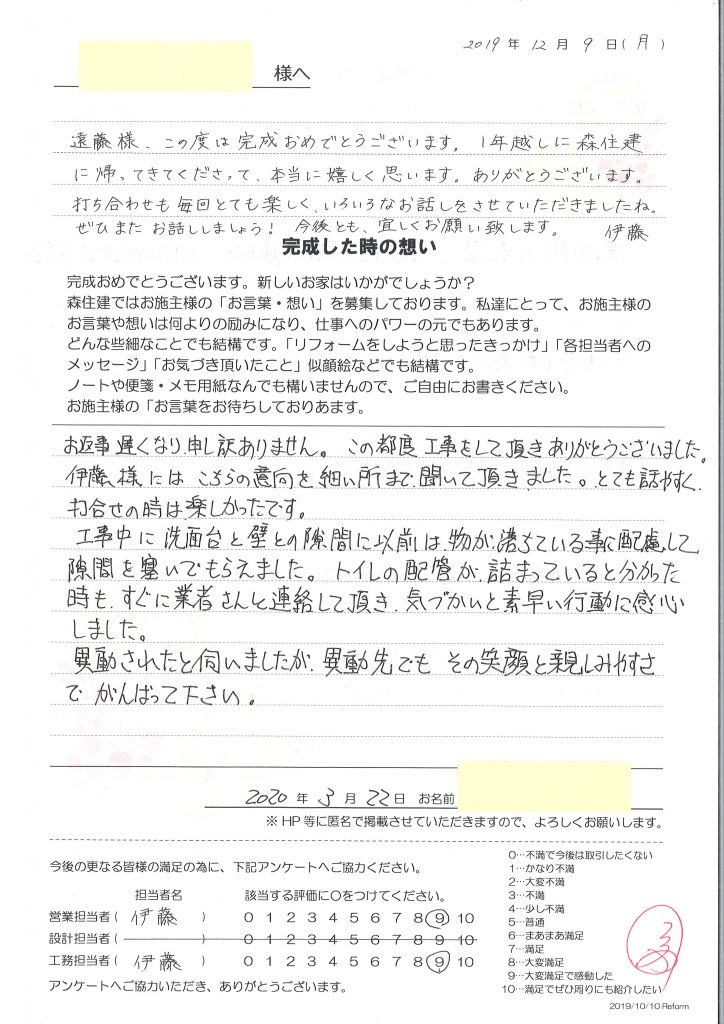 2019年 12月 9日(月)
様へ
遠藤様、この度は完成おめでとうございます。1年越しに森住建
に帰ってきてくださって、本当に嬉しく思います。ありがとうございます。
打ち合わせも毎回とても楽しく、いろいろなお話しをさせていただきましたね。
ぜひまたお話ししましょう! 今後とも、宜しくお願い致します。 伊藤
完成した時の想い
完成おめでとうございます。新しいお家はいかがでしょうか?
森住建ではお施主様の「お言葉・想い」を募集しております。私達にとって、お施主様の
お言葉や想いは何よりの励みになり、仕事へのパワーの元でもあります。
どんな些細なことでも結構です。「リフォームをしようと思ったきっかけ」「各担当者への
メッセージ」「お気づき頂いたこと」似顔絵などでも結構です。
ノートや便箋・メモ用紙なんでも構いませんので、ご自由にお書きください。
お施主様の「お言葉をお待ちしておりあます。
お返事遅くなり申し訳ありません。この都度工事をして頂きありがとうございました。
伊藤様にはこちらの意向を細い所まで聞いて頂きました。とても話やすく
打合せの時は楽しかったです。
工事中に洗面台と壁との隙間に以前は物が落ちている事に配慮して
隙間を塞いでもらえました。トイレの配管が詰まっていると分かった
時も、すぐに業者さんと連絡して頂き、気づかいと素早い行動に感心
しました。
異動されたと伺いましたが、異動先でもその笑顔と親しみやすさ
でがんばって下さい。
2020年 3月 22日 お名前
※HP等に匿名で掲載させていただきますので、よろしくお願いします。
今後の更なる皆様の満足の為に、下記アンケートへご協力ください。
担当者名 該当する評価に○をつけてください。
営業担当者( 伊藤 ) 0 1 2 3 4 5 6 7 8 9 10
設計担当者( ) 0 1 2 3 4 5 6 7 8 9 10
工務担当者( 伊藤 ) 0 1 2 3 4 5 6 7 8 9 10
アンケートへご協力いただき、ありがとうございます。
0…不満で今後は取引したくない
1…かなり不満
2…大変不満
3…不満
4…少し不満
5…普通
6…まあまあ満足
7…満足
8…大変満足
9…大変満足で感動した
10…満足でぜひ周りにも紹介したい
2019/10/10 Reform